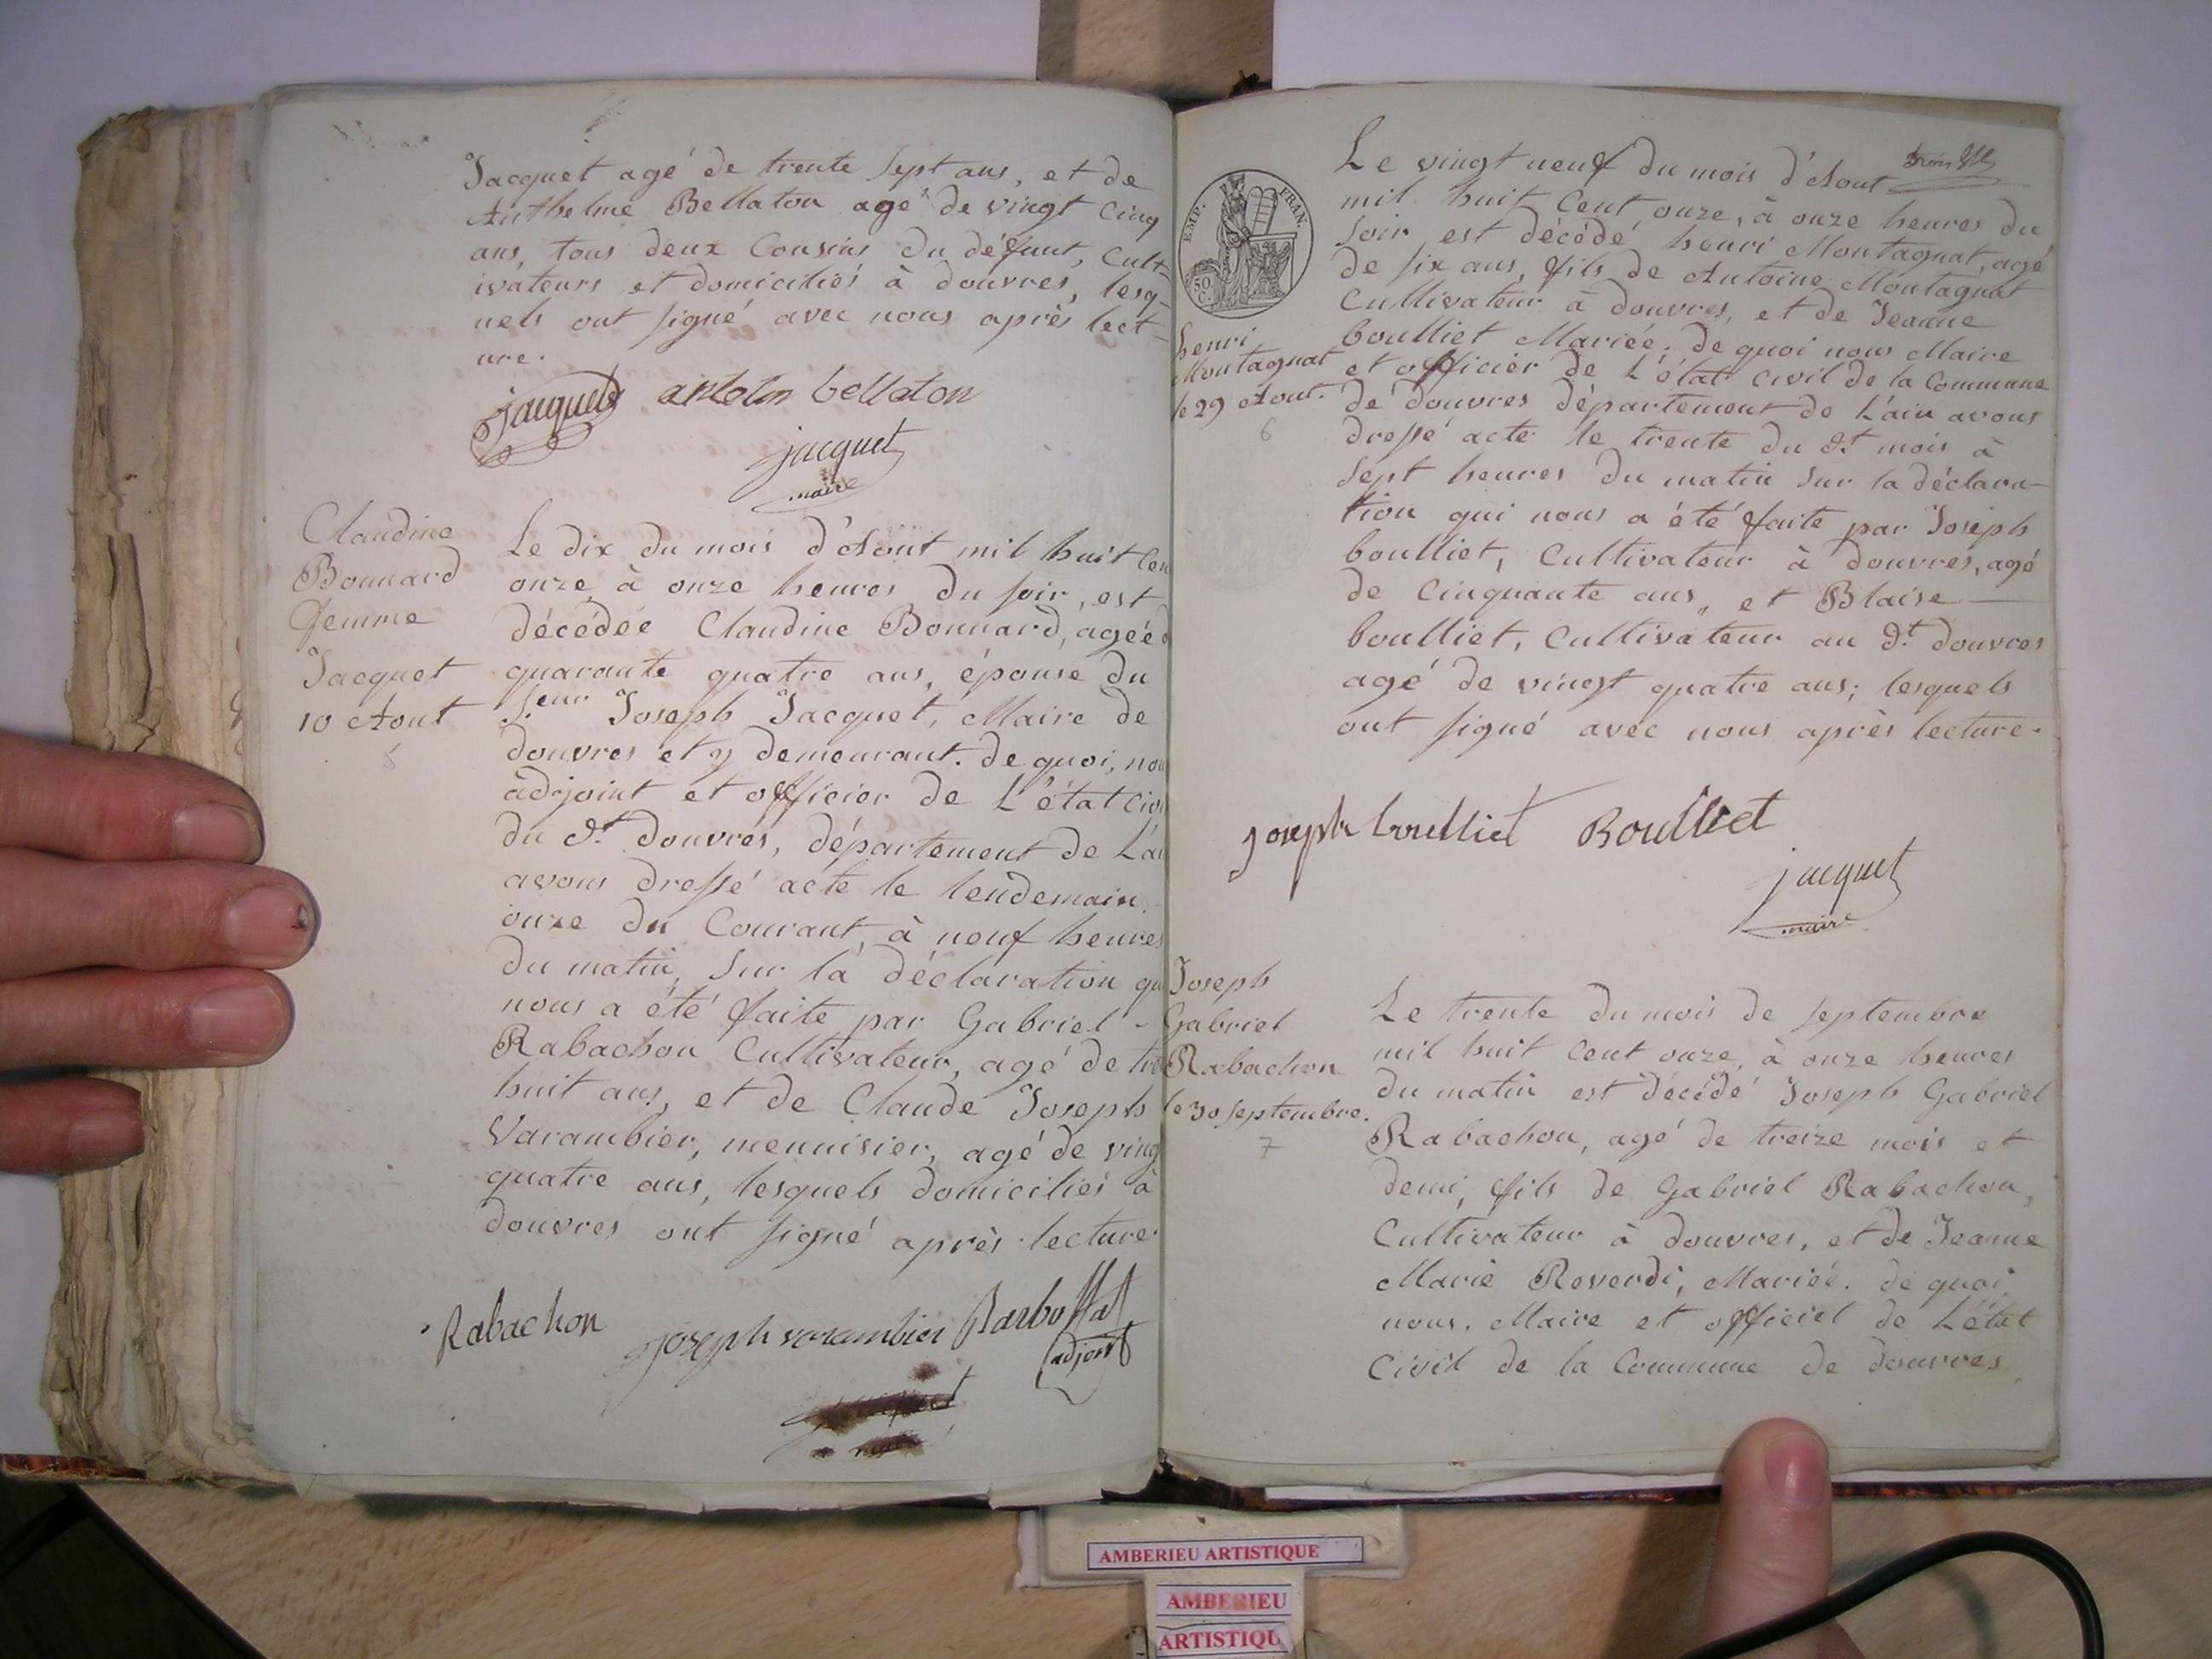 Jacquet agé de trente sept ans, et de
Anthelme Bellaton agé de vingt cinq
ans, tous deux Cousins du défunt, Cult-
ivateurs et domiciliés à douvres, lesq-
uels ont signé avec nous après lect-
ure.
jacquet antelm bellaton
jacquet
maire
Claudine
Bonnard
femme
Jacquet
10 Aout
5
Le dix du mois d'Aout mil huit Cen
onze, à onze heures du soir, est
décédée Claudine Bonnard, agée d
quarante quatre ans, épouse du
S.eur Joseph Jacquet, Maire de
douvres et y demeurant. de quoi, nou
adjoint et officier de L'état civi
du d.t douvres, département de L'ai
avons dressé acte le lendemain,
onze du Courant, à neuf heures
du matin, sur la déclaration qu
nous a été faite par Gabriel -
Rabachon Cultivateur, agé de tre
huit ans, et de Claude Joseph
Varambier, menuisier, agé de ving
quatre ans, lesquels domiciliés à
douvres ont signé après lecture.
Rabachon joseph varambier
adjoint
EMP. FRAN.
50
C.
henri
Montagnat
le 29 Aout.
6
Le vingt neuf du mois d'Aout
mil huit Cent onze, à onze heures du
soir est décédé henri Montagnat, agé
de six ans, fils de Antoine Montagnat
Cultivateur à douvres, et de Jeanne
boulliet Mariée. de quoi nous Maire
et officier de L'état civil de la Commune
de douvres département de L'ain avons
dressé acte le trente du d.t mois à
sept heures du matin sur la déclara-
tion qui nous a été faite par Joseph
boulliet, Cultivateur à douvres, agé
de Cinquante ans, et Blaise
boulliet, Cultivateur au d.t douvres
agé de vingt quatre ans; lesquels
ont signé avec nous après lecture.
joseph boulliet Boulliet
jacquet
maire
Joseph
Gabriel
Rabachon
le 30 septembre.
7
Le trente du mois de septembre
mil huit Cent onze, à onze heures
du matin est décédé Joseph Gabriel
Rabachon, agé de treize mois et
demi, fils de Gabriel Rabachon,
Cultivateur à douvres, et de Jeanne
Marie Reverdi, Mariée. de quoi,
nous, Maire et officiel de L'état
Civil de la Commune de douvres,
AMBERIEU ARTISTIQUE
AMBERIEU
ARTISTIQU